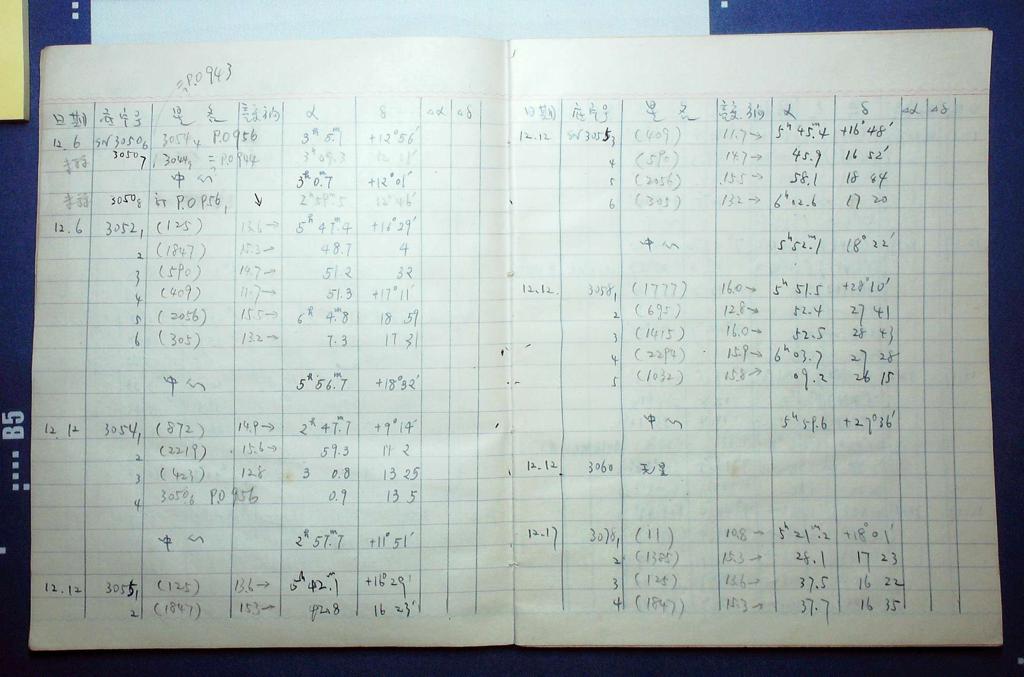 =P.0943
日期 底片号 星名 α δ Δα Δδ
12.6 SN 3050₆ 3054₄ P.0956 3ʰ 5ᵐ. +12°56'
3050₇ 3044₃ = P.0944 3ʰ 09.3
中心 3ʰ 0.7ᵐ +12°01'
3050₈ P.0956₁ ↓ 2ʰ 59ᵐ.5 12°46'
12.6 3052₁ (125) 13.6→ 5ʰ 47ᵐ.4 +16°29'
2 (1847) 15.3→ 48.7 4
3 (590) 14.7→ 51.2 32
4 (409) 11.7→ 51.3 +17°11'
5 (2056) 15.5→ 6ʰ 4ᵐ.8 18 59
6 (305) 13.2→ 7.3 17 31
中心 5ʰ 56ᵐ.7 +18°32'
12.12 3054₁ (872) 14.9→ 2ʰ 47ᵐ.7 +9°14'
2 (2219) 15.6→ 59.3 11 2
3 (423) 12.8 3 0.8 13 25
4 3050₆ P.0956 0.9 13 5
中心 2ʰ 57ᵐ.7 +11°51'
12.12 3055₁ (125) 13.6→ 5ʰ 42ᵐ.1 +16°29'
2 (1847) 15.3→ 42.8 16 23'
日期 底片号 星名 α δ Δα Δδ
12.12 SN 3055₃ (409) 11.7→ 5ʰ 45ᵐ.4 +16°48'
4 (590) 14.7→ 45.9 16 52'
5 (2056) 15.5→ 58.1 18 44
6 (305) 13.2→ 6ʰ 02.6ᵐ 17 20
中心 5ʰ 52ᵐ.1 18°22'
12.12. 3058₁ (1777) 16.0→ 5ʰ 51.5 +28°10'
2 (695) 12.8→ 52.4 27 41
3 (1415) 16.0→ 52.5 28 43
4 (2294) 15.9→ 6ʰ 03.7 27 28
5 (1032) 15.8→ 09.2 26 15
中心 5ʰ 59.6 +27°36'
12.12. 3060 无星
12.17 3078₁ (11) 10.8→ 5ʰ 21ᵐ.2 +18°01'
2 (1385) 15.3→ 28.1 17 23
3 (125) 13.6→ 37.5 16 22
4 (1847) 15.3→ 37.7 16 35
B5